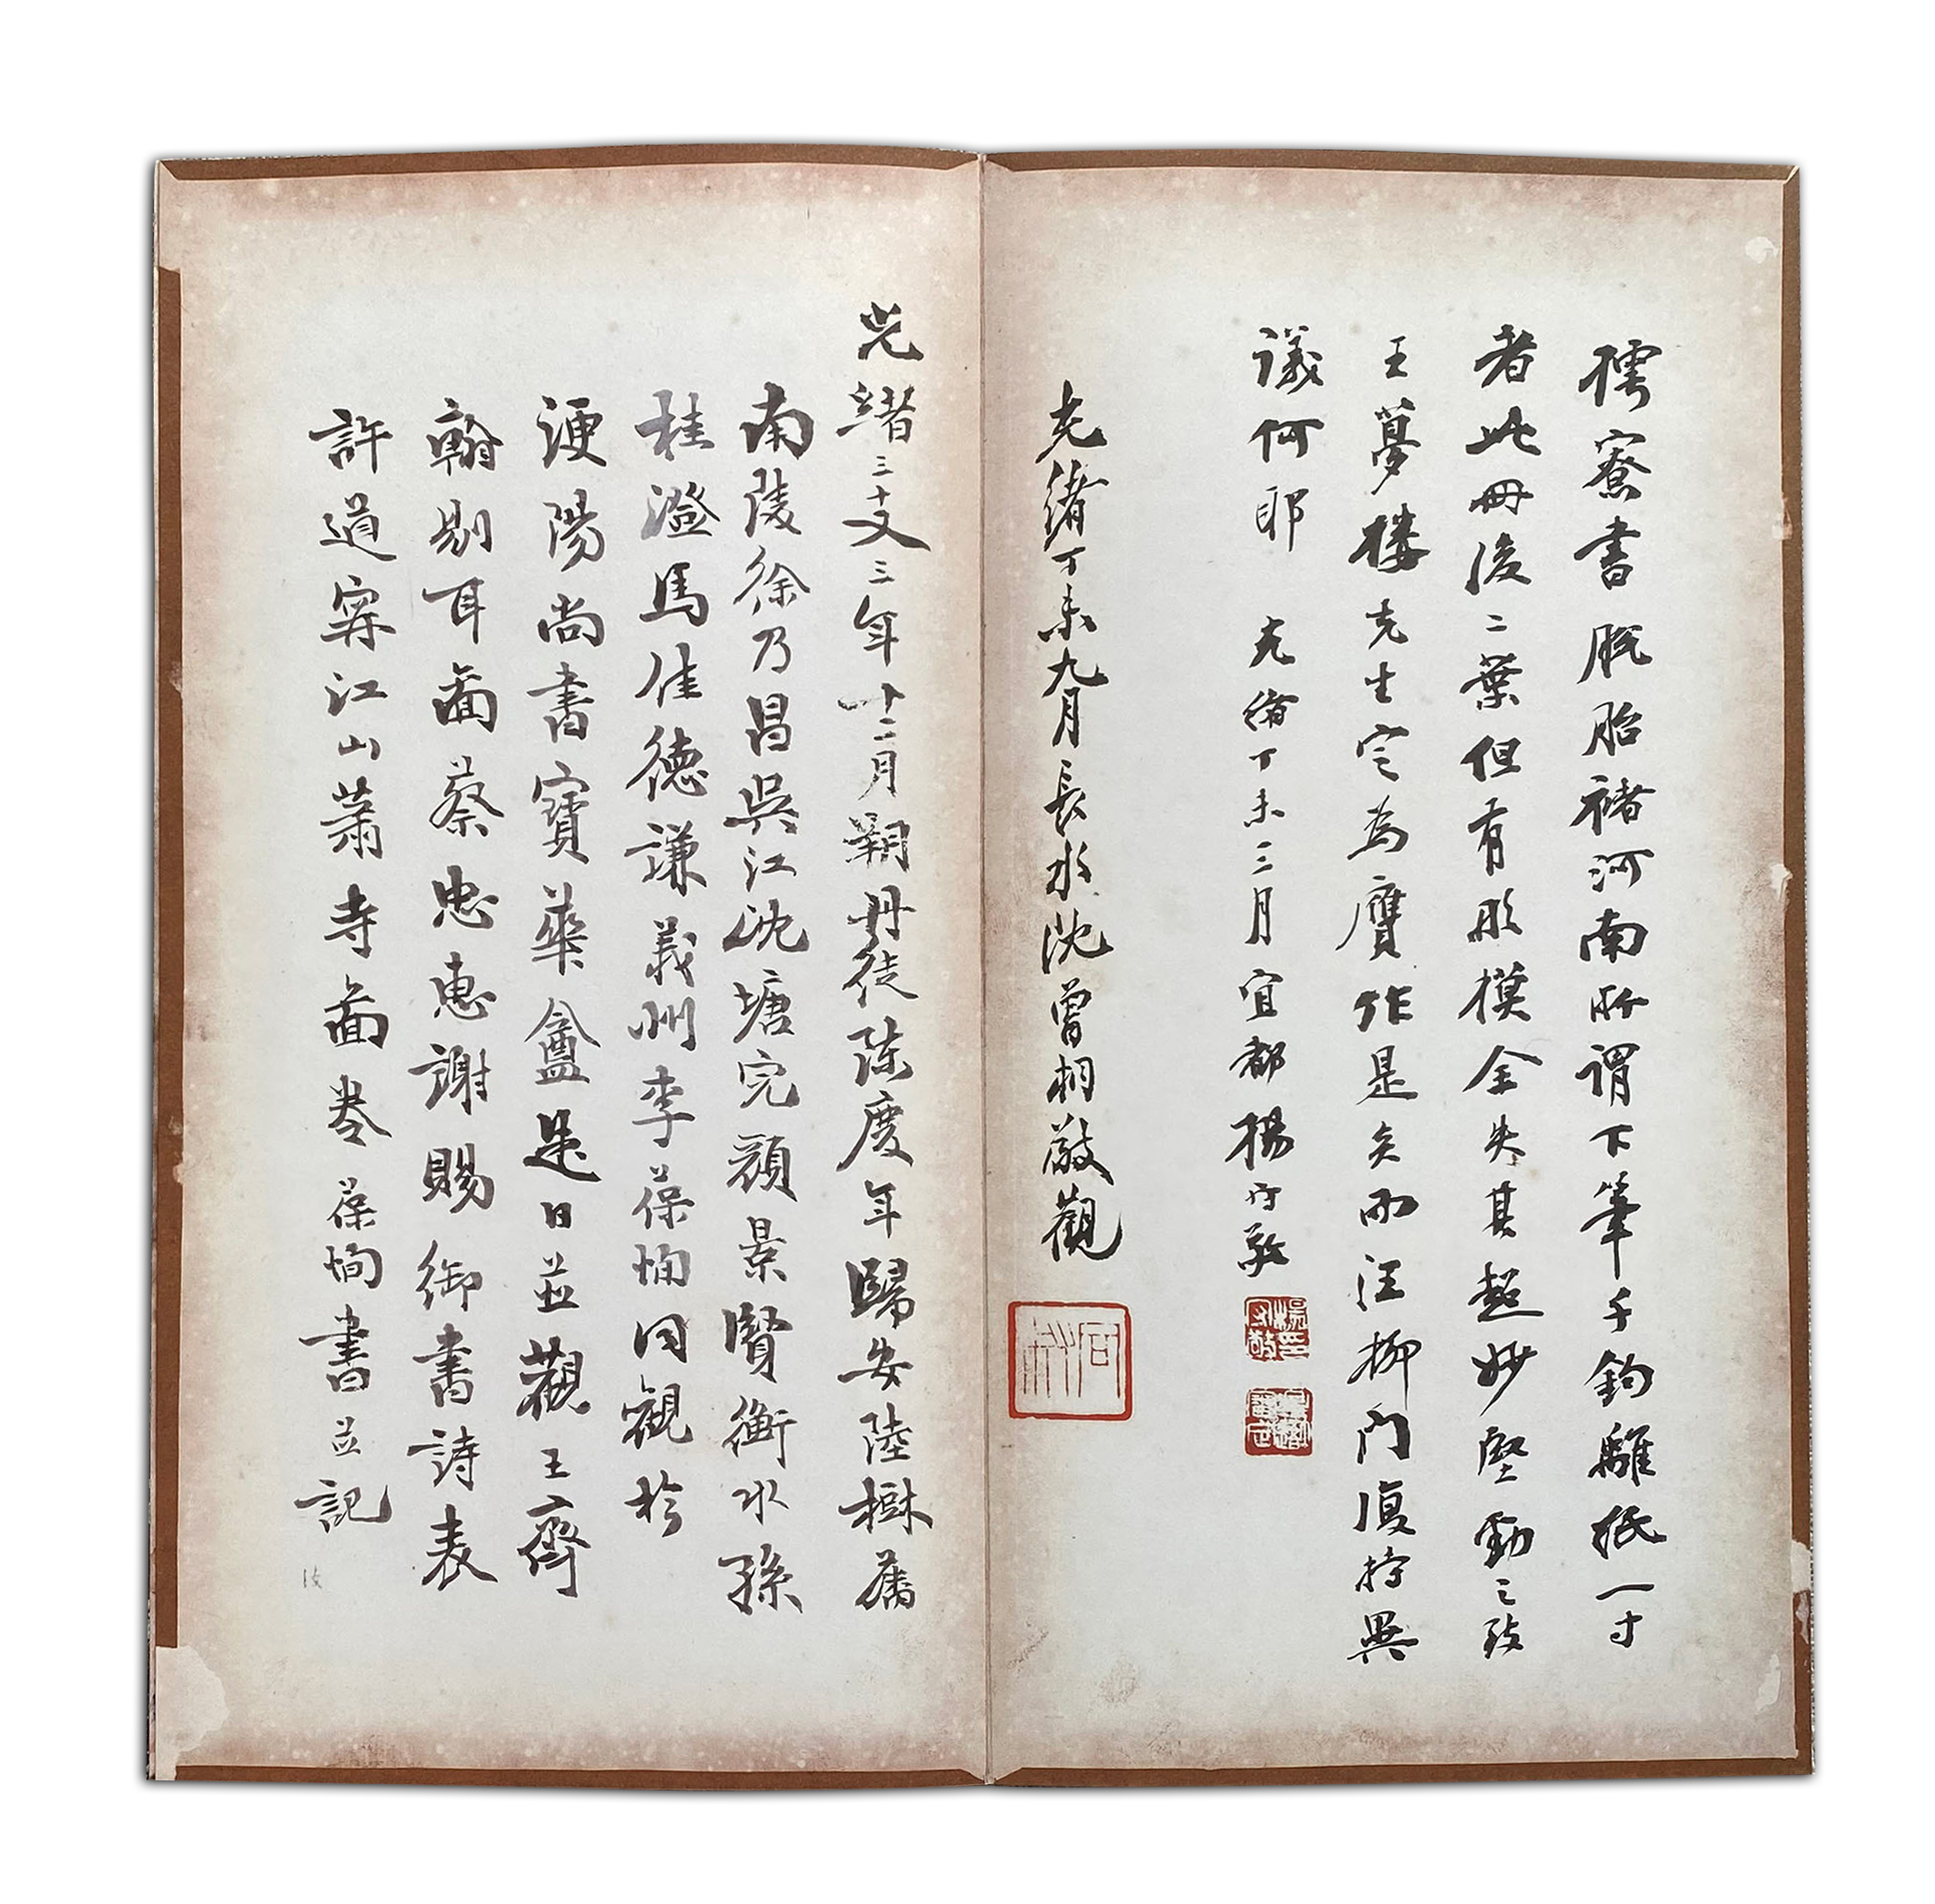 樗寮書脫胎褚河南所謂下筆千鈞離紙一寸
者此冊後二葉但有形模全失其超妙堅勁之致
王夢樓先生定為贗作是矣而汪柳門復持異
議何耶 光緒丁未三月宜都楊守敬
光緒丁未九月長水沈曾桐敬觀
光緒三十又三年十二月朔丹徒陳慶年歸安陸樹藩
南陵徐乃昌吳江沈塘完顏景賢衡水孫
桂澂馬佳德謙義州李葆恂同觀於
浭陽尚書寶華盦是日並觀王齊
翰剔耳啚蔡忠惠謝賜御書詩表
許道寧江山蕭寺啚卷葆恂書並記